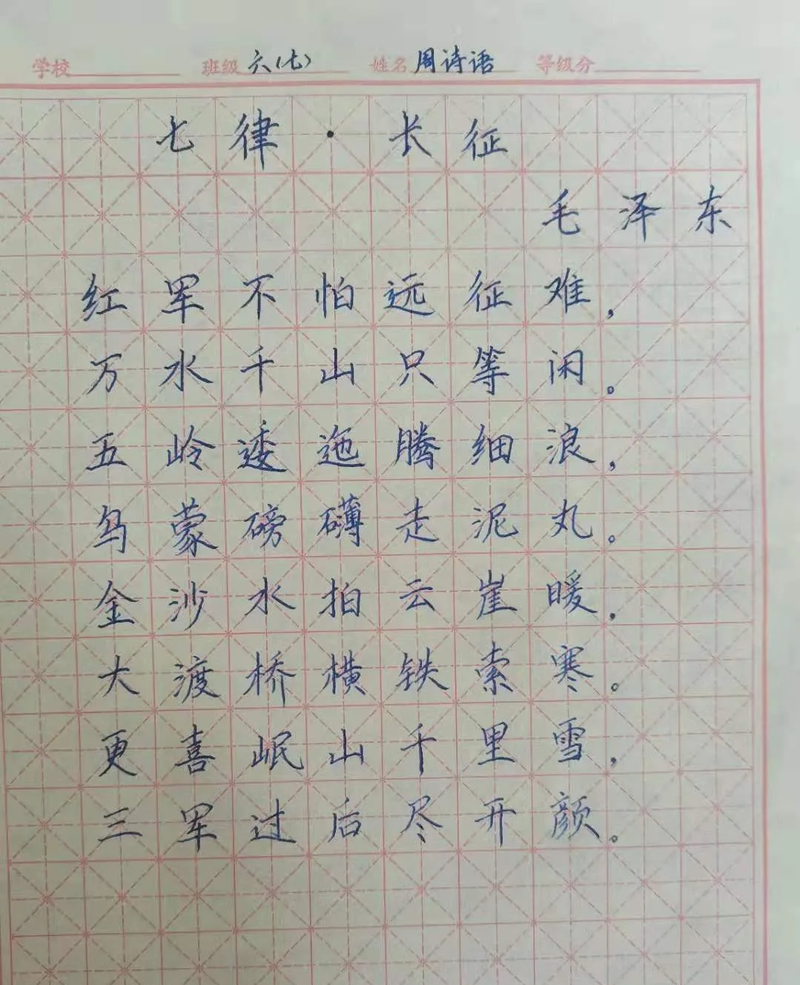 学校 班级 六(七) 姓名 周诗语 等级分
七律·长征
毛泽东
红军不怕远征难,
万水千山只等闲。
五岭逶迤腾细浪,
乌蒙磅礴走泥丸。
金沙水拍云崖暖,
大渡桥横铁索寒。
更喜岷山千里雪,
三军过后尽开颜。